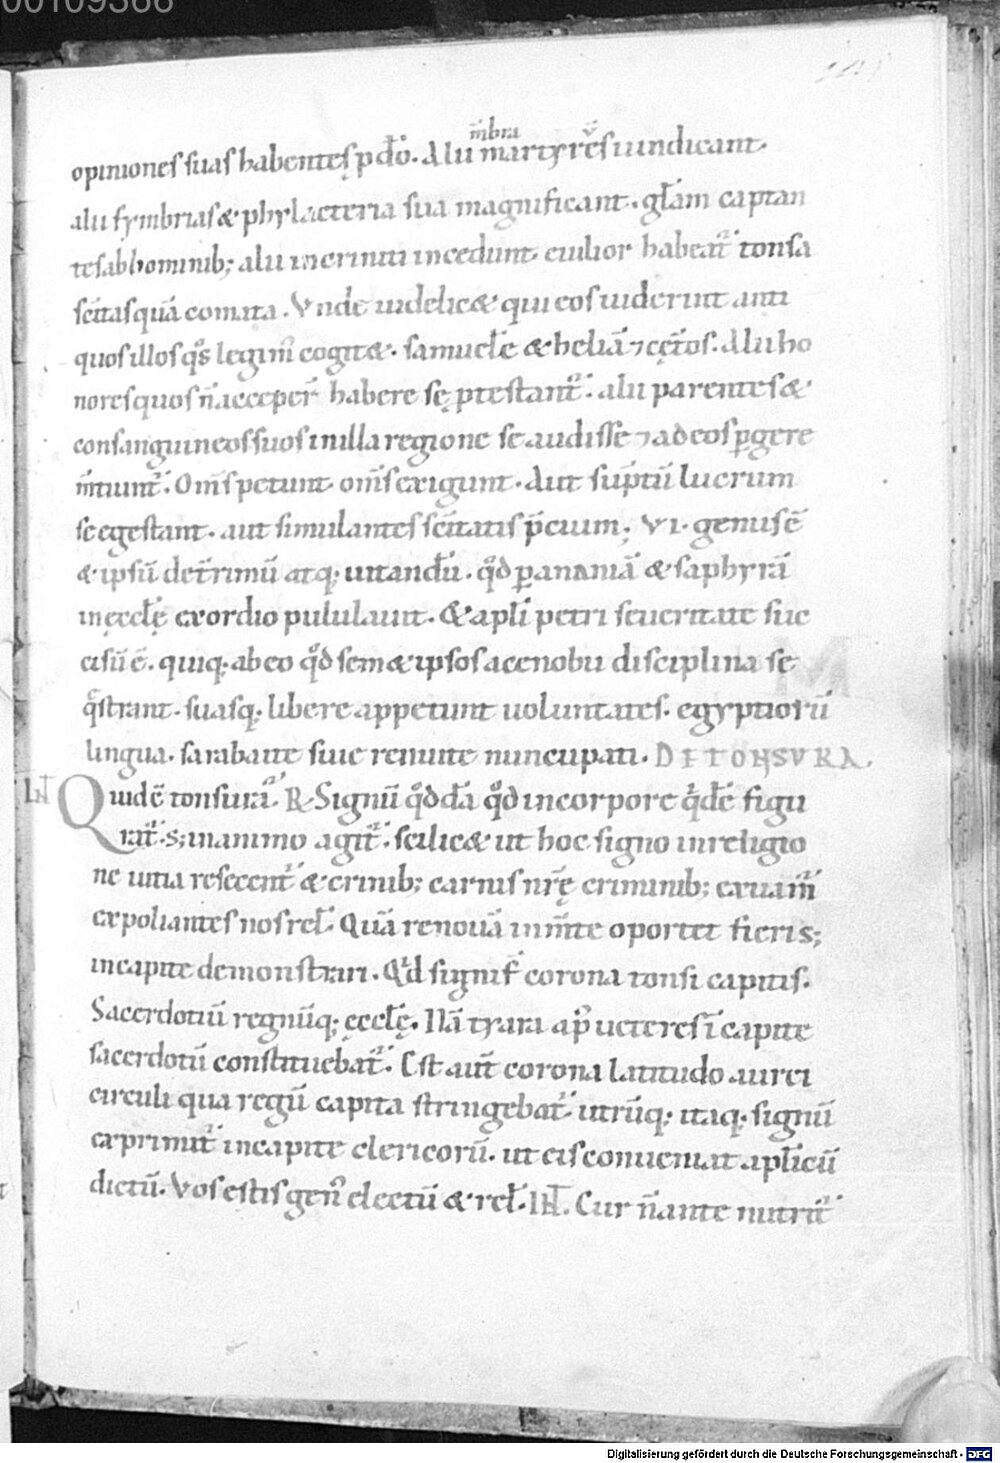 00109366
m̄bra v̄
opiniones suas habentes p dō. Alii martyres uindicant.
alii fymbrias & phylacteria sua magnificant. glām captan
tes ab hominib; alii incriniti incedunt. euilior habeat᷑ tonsa
sc̄itas quā comata. Vnde uidelic& qui eos uiderint anti
quos illos q̊s legim᷒ cogit&. samuelē & heliā ⁊ cęt̄os. Alii ho
nores quos n̄ acceper̄ habere sę p̄testant᷑. alii parentes &
consanguineos suos in illa regione se audisse ⁊ ad eos ꝑgere
m̄tiunt᷑. Om̄s petunt. om̄s exigunt. Aut sūptū lucrum
se egestant. aut simulantes sc̄itatis p̄cium; VI. genus ē
& ipsū det̄rimū atq; uitandū. qd̄ ꝑ ananiā & saphyrā
in ęcclę̄ exordio pululauit. & apl̄i petri seueritate suc
cisū ē. quiq; ab eo qd̄ sem& ipsos a cenobii disciplina se
q̄strant. suasq; libere appetunt uoluntates. egyptiorū
lingua. sarabaite siue renuite nuncupati. DE TONSVRA.
INT Quid ē tonsura᷑. R Signū qd̄dā qd̄ in corpore q̇dē figu
rat᷑. s; in animo agit᷑. scilic& ut hoc signo in religio
ne uitia resecent᷑ & crinib; carnis nr̄ę criminib; exuam᷒
expoliantes nos rel̄. Quā renouā in m̄te oportet fieri s;
in capite demonstrari. Qd̄ signif̄ corona tonsi capitis.
Sacerdotiū regnūq; ęcclę̄. Nā tyara ap̄ ueteres ī capite
sacerdotū constituebat᷑. Est aut̄ corona latitudo aurei
circuli qua regū capita stringebat᷑. utrūq; itaq; signū
exprimit᷑ in capite clericorū. ut eis conueniat aplicū
dictū. Vos estis gen᷒ electū & rel̄. INT. Cur n̄ ante nutrit᷑
Digitalisierung gefördert durch die Deutsche Forschungsgemeinschaft - DFG